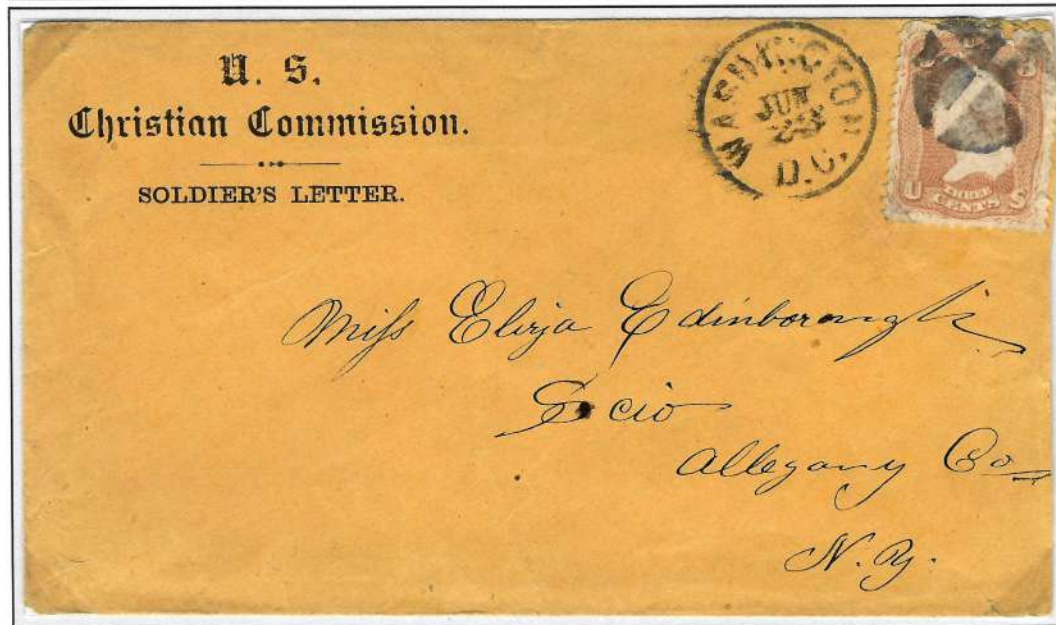 U. S.
Christian Commission.
SOLDIER'S LETTER.
WASHINGTON
JUN
23
D.C.
3
U THREE CENTS S
Miss Eliza Edinborough
Scio
Allegany Co
N. Y.